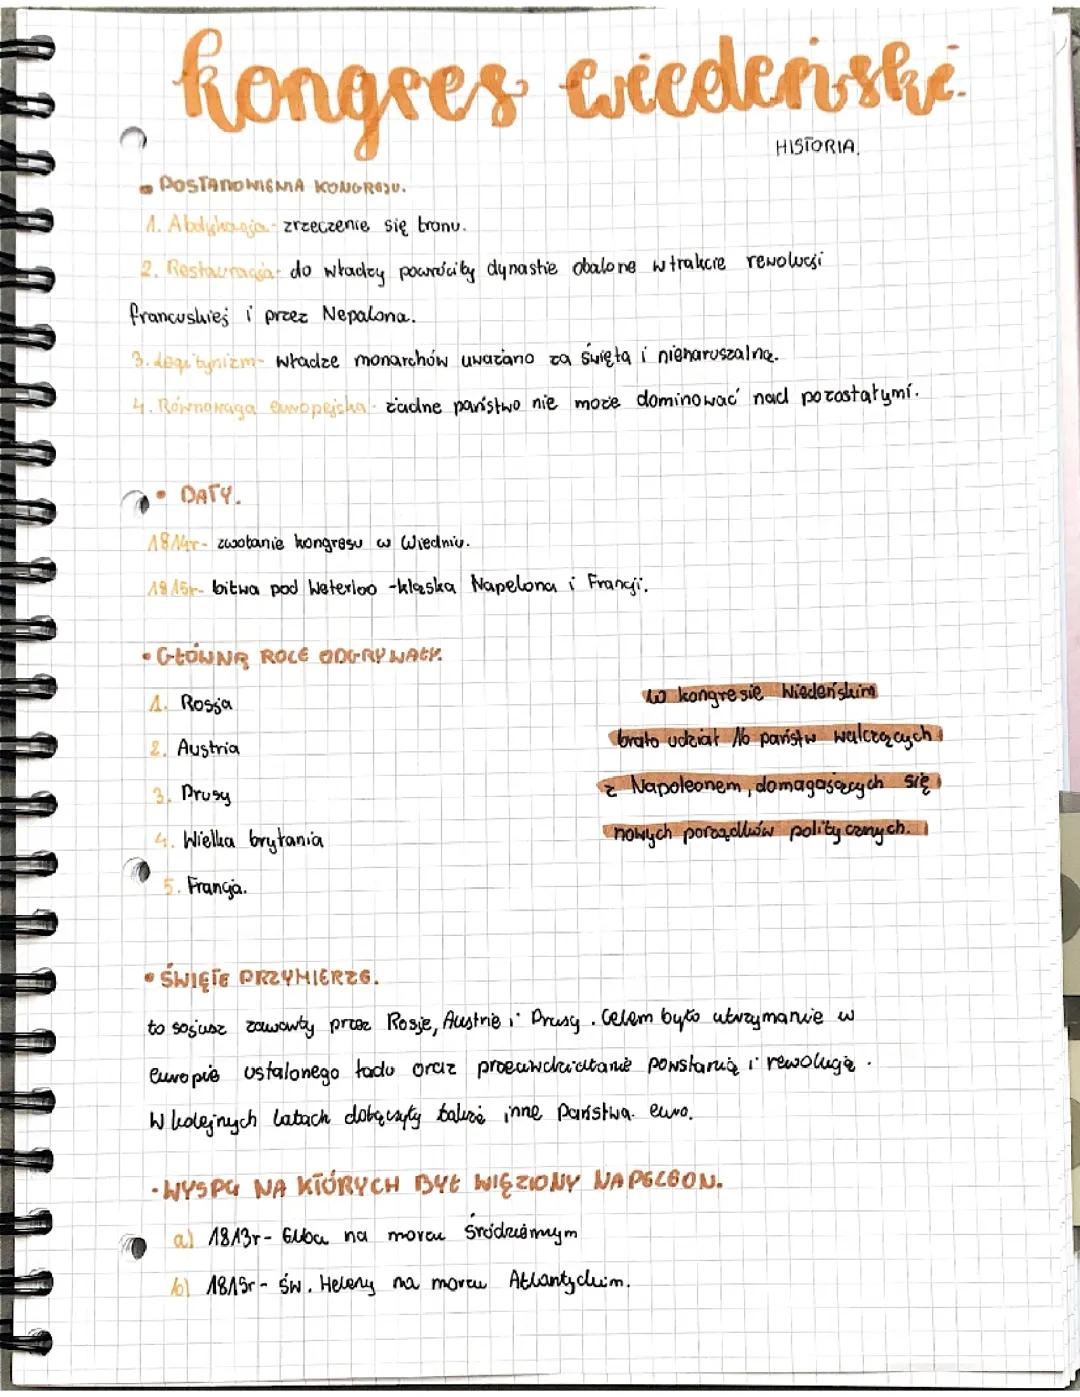 kongres wiedeński.
HISTORIA.
POSTANOWIENIA KONGRESU.
1. Abdykacja - zrzeczenie się tronu.
2. Restauracja - do władzy powróciły dynastie obalone w trakcie rewolucji
francuskiej i przez Nepalona.
3. Legitynizm - władze monarchów uważano za świętą i nienaruszalną.
4. Równowaga europejska - żadne państwo nie może dominować nad pozostałymi.
• DATY.
1814r - zwołanie kongresu w Wiedniu.
1815r - bitwa pod Waterloo - klęska Napelona i Francji.
• GŁÓWNĄ ROLE ODGRYWAŁY.
1. Rosja
2. Austria
3. Prusy
4. Wielka brytania
5. Francja.
W kongresie Wiedeńskim
brało udział 16 państw walczących
z Napoleonem, domagających się
nowych porządków politycznych.
• ŚWIĘTE PRZYMIERZE.
to sojusz zawarty przez Rosje, Austrie i Prusy. Celem było utrzymanie w
europie ustalonego ładu oraz przeciwdziałanie powstanią i rewolucją.
W kolejnych latach dołączyły także inne Państwa. euro.
• WYSPY NA KTÓRYCH BYŁ WIĘZIONY NAPELEON.
a) 1813r - Elba na morzu Śródziemnym
b) 1815r - św. Heleny na morzu Atlantyckim.